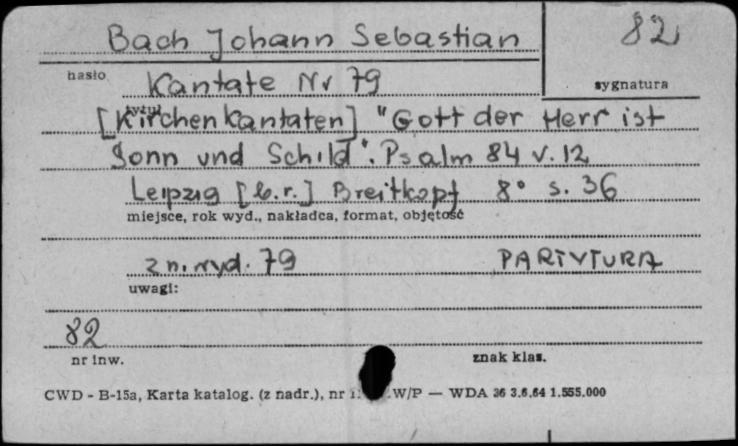 Bach Johann Sebastian 82
hasło Kantate Nr 79 sygnatura
tytuł
[Kirchenkantaten] "Gott der Herr ist
Sonn und Schild". Psalm 84 v. 12
Leipzig [b.r.] Breitkopf 8° s. 36
miejsce, rok wyd., nakładca, format, objętość
z n. wyd. 79 PARTYTURA
uwagi:
82
nr inw. znak klas.
CWD - B-15a, Karta katalog. (z nadr.), nr W/P — WDA 36 3.6.64 1.555.000